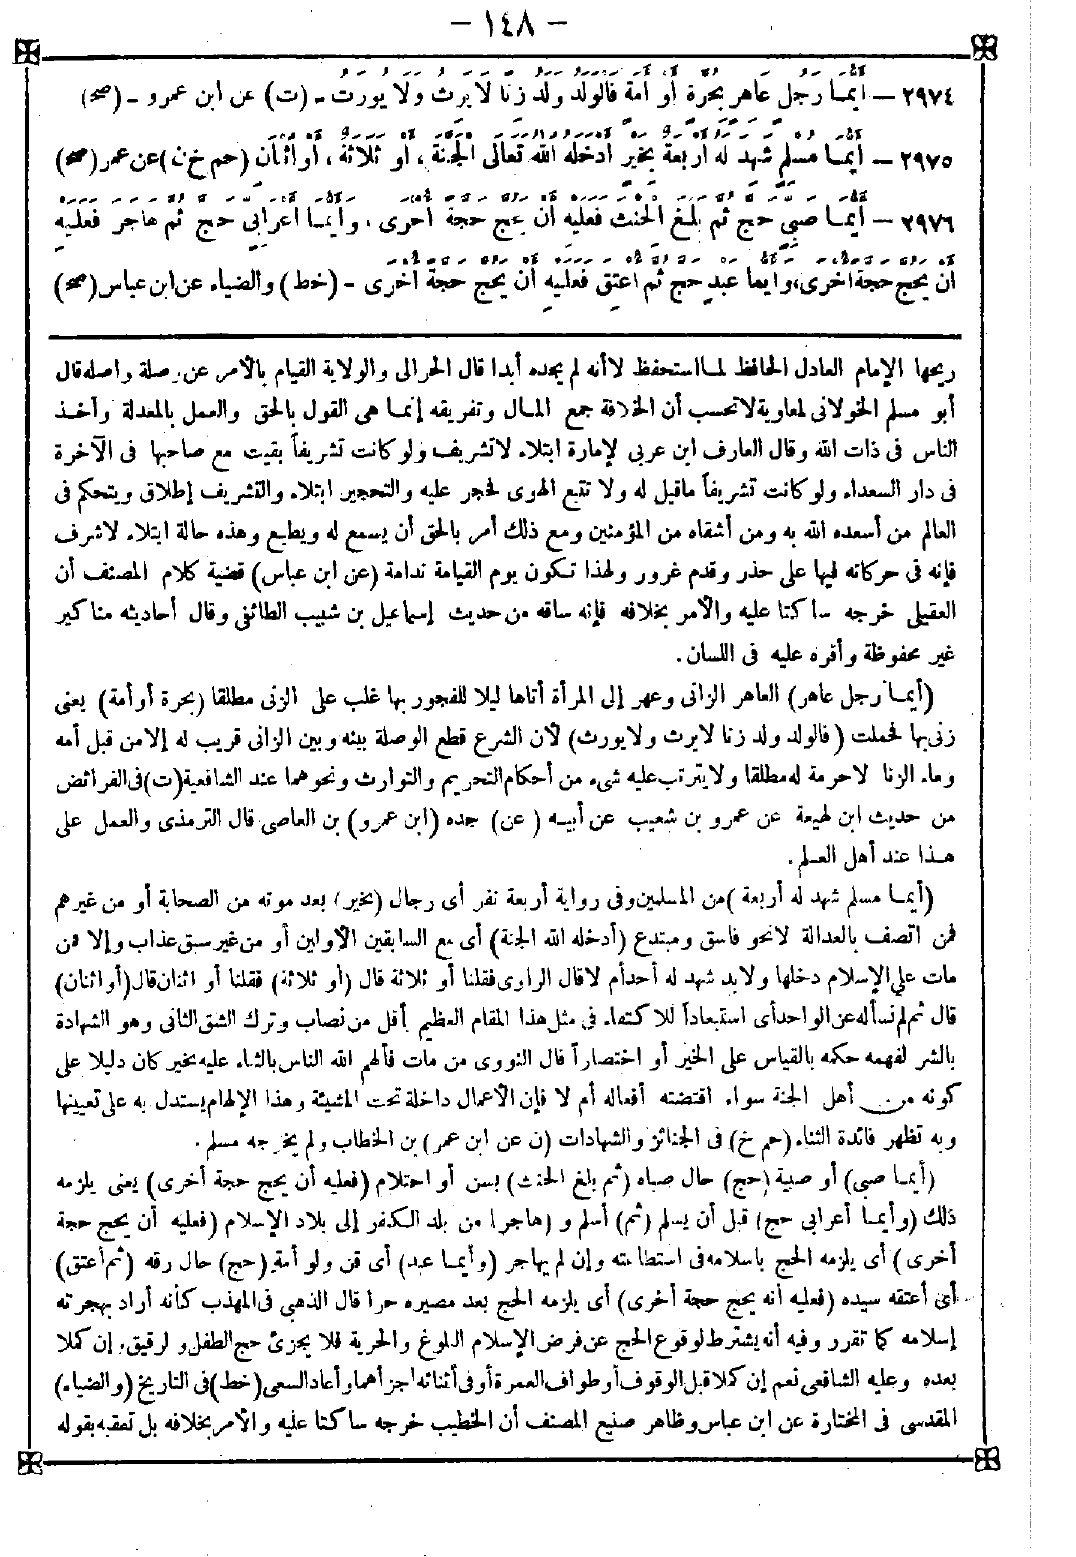 – ١٤٨ –
٢٩٧٤ – أَيُّمَا رَجُلٍ عَاهَرَ بِحُرَّةٍ أَوْ أَمَةٍ فَالْوَلَدُ وَلَدُ زِنًا لَا يَرِثُ وَلَا يُورَثُ – (ت) عن ابن عمرو – (صح)
٢٩٧٥ – أَيُّمَا مُسْلِمٍ شَهِدَ لَهُ أَرْبَعَةٌ بِخَيْرٍ أَدْخَلَهُ اللهُ تَعَالَى الْجَنَّةَ، أَوْ ثَلَاثَةٌ، أَوِ اثْنَانِ (حم خ ن) عن عمر (صح)
٢٩٧٦ – أَيُّمَا صَبِيٍّ حَجَّ ثُمَّ بَلَغَ الْحِنْثَ فَعَلَيْهِ أَنْ يَحُجَّ حَجَّةً أُخْرَى، وَأَيُّمَا أَعْرَابِيٍّ حَجَّ ثُمَّ هَاجَرَ فَعَلَيْهِ
أَنْ يَحُجَّ حَجَّةً أُخْرَى، وَأَيُّمَا عَبْدٍ حَجَّ ثُمَّ أُعْتِقَ فَعَلَيْهِ أَنْ يَحُجَّ حَجَّةً أُخْرَى – (خط) والضياء عن ابن عباس (صح)
ريحها الإمام العادل الحافظ لما استحفظ لا أنه لم يجده أبدا قال الحرالى والولاية القيام بالأمر عن وصلة واصله قال
أبو مسلم الخولانى لمعاوية لا تحسب أن الخلافة جمع المال وتفريقه إنما هى القول بالحق والعمل بالمعدلة وأخذ
الناس فى ذات الله وقال العارف ابن عربى لإمارة ابتلاء لا تشريف ولو كانت تشريفاً بقيت مع صاحبها فى الآخرة
فى دار السعداء ولو كانت تشريفاً ما قيل له ولا تتبع الهوى لحجر عليه والتحجير ابتلاء والتشريف إطلاق ويتحكم فى
العالم من أسعده الله به ومن أشقاه من المؤمنين ومع ذلك أمر بالحق أن يسمع له ويطيع وهذه حالة ابتلاء لا شرف
فإنه فى حركاته فيها على حذر وقدم غرور ولهذا تكون يوم القيامة ندامة (عن ابن عباس) قضية كلام المصنف أن
العقيلى خرجه ساكتا عليه والأمر بخلافه فإنه ساقه من حديث إسماعيل بن شبيب الطائفى وقال أحاديثه مناكير
غير محفوظة وأقره عليه فى اللسان.
(أيما رجل عاهر) العاهر الزانى وعهر إلى المرأة أتاها ليلا للفجور بها غلب على الزنى مطلقا (بحرة أو أمة) يعنى
زنى بها فحملت (فالولد ولد زنا لا يرث ولا يورث) لأن الشرع قطع الوصلة بينه وبين الزانى قريب له إلا من قبل أمه
وماء الزنا لا حرمة له مطلقا ولا يترتب عليه شىء من أحكام التحريم والتوارث ونحوهما عند الشافعية (ت) فى الفرائض
من حديث ابن لهيعة عن عمرو بن شعيب عن أبيه (عن) جده (ابن عمرو) بن العاصى قال الترمذى والعمل على
هذا عند أهل العلم.
(أيما مسلم شهد له أربعة) من المسلمين وفى رواية أربعة نفر أى رجال (بخير) بعد موته من الصحابة أو من غيرهم
فمن اتصف بالعدالة لا نحو فاسق ومبتدع (أدخله الله الجنة) أى مع السابقين الأولين أو من غير سبق عذاب وإلا فمن
مات على الإسلام دخلها ولابد شهد له أحد أم لا قال الراوى فقلنا أو ثلاثة قال (أو ثلاثة) فقلنا أو اثنان قال (أو اثنان)
قال ثم لم نسأله عن الواحد أى استبعاداً للاكتفاء فى مثل هذا المقام العظيم بأقل من نصاب وترك الشق الثانى وهو الشهادة
بالشر لفهمه حكمه بالقياس على الخير أو اختصاراً قال النووى من مات فألهم الله الناس بالثناء عليه بخير كان دليلا على
كونه من أهل الجنة سواء اقتضته أفعاله أم لا فإن الأعمال داخلة تحت المشيئة وهذا الإلهام يستدل به على تعيينها
وبه تظهر فائدة الثناء (حم خ) فى الجنائز والشهادات (ن عن ابن عمر) بن الخطاب ولم يخرجه مسلم.
(أيما صبى) أو صبية (حج) حال صباه (ثم بلغ الحنث) بسن أو احتلام (فعليه أن يحج حجة أخرى) يعنى يلزمه
ذلك (وأيما أعرابى حج) قبل أن يسلم (ثم) أسلم و (هاجر) من بلد الكفر إلى بلاد الإسلام (فعليه أن يحج حجة
أخرى) أى يلزمه الحج بإسلامه فى استطاعته وإن لم يهاجر (وأيما عبد) أى قن ولو أمة (حج) حال رقه (ثم أعتق)
أى أعتقه سيده (فعليه أنه يحج حجة أخرى) أى يلزمه الحج بعد مصيره حرا قال الذهبى فى المهذب كأنه أراد بهجرته
إسلامه كما تقرر وفيه أنه يشترط لوقوع الحج عن فرض الإسلام البلوغ والحرية فلا يجزئ حج الطفل و لرقيق، إن كملا
بعده وعليه الشافعى نعم إن كملا قبل الوقوف أو طواف العمرة أو فى أثنائه أجزأهما وأعاد السعى (خط) فى التاريخ (والضياء)
المقدسى فى المختارة عن ابن عباس وظاهر صنيع المصنف أن الخطيب خرجه ساكتا عليه والأمر بخلافه بل تعقبه بقوله